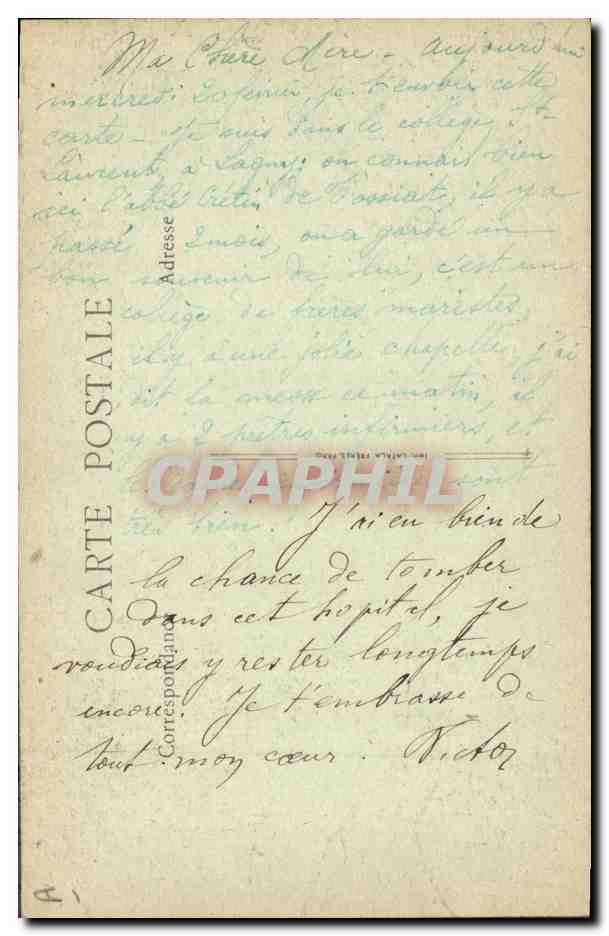 Ma Chère Mère - aujourd'hui
mercredi 20 février, je t'envoie cette
carte - Je suis dans le collège St-
Laurent, à Lagny; on connait bien
ici l'abbé Crétin de Fossiat, il y a
passé 2 mois, on a gardé un
bon souvenir de lui, c'est un
collège de frères maristes,
il y a une jolie chapelle, j'ai
dit la messe ce matin, il
y a 2 prêtres infirmiers, et
sont
très bien. J'ai eu bien de
la chance de tomber
dans cet hopital, je
voudrais y rester longtemps
encore. Je t'embrasse de
tout mon cœur. Victor
CARTE POSTALE
Correspondance
Adresse
IMP. CATALA FRÈRES, PARIS
CPAPHIL
A